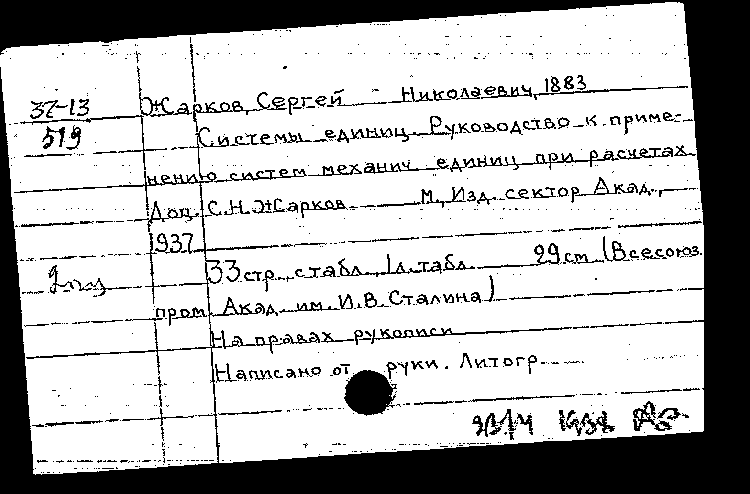 37-13
519
Жарков, Сергей Николаевич, 1883
Системы единиц. Руководство к приме-
нению систем механич. единиц при расчетах
Доц. С.Н. Жарков. М., Изд. сектор Акад.,
1937
33 стр. с табл., 1 л. табл. 29 cm (Всесоюз.
пром. Акад. им. И.В. Сталина)
На правах рукописи
Написано от руки. Литогр.